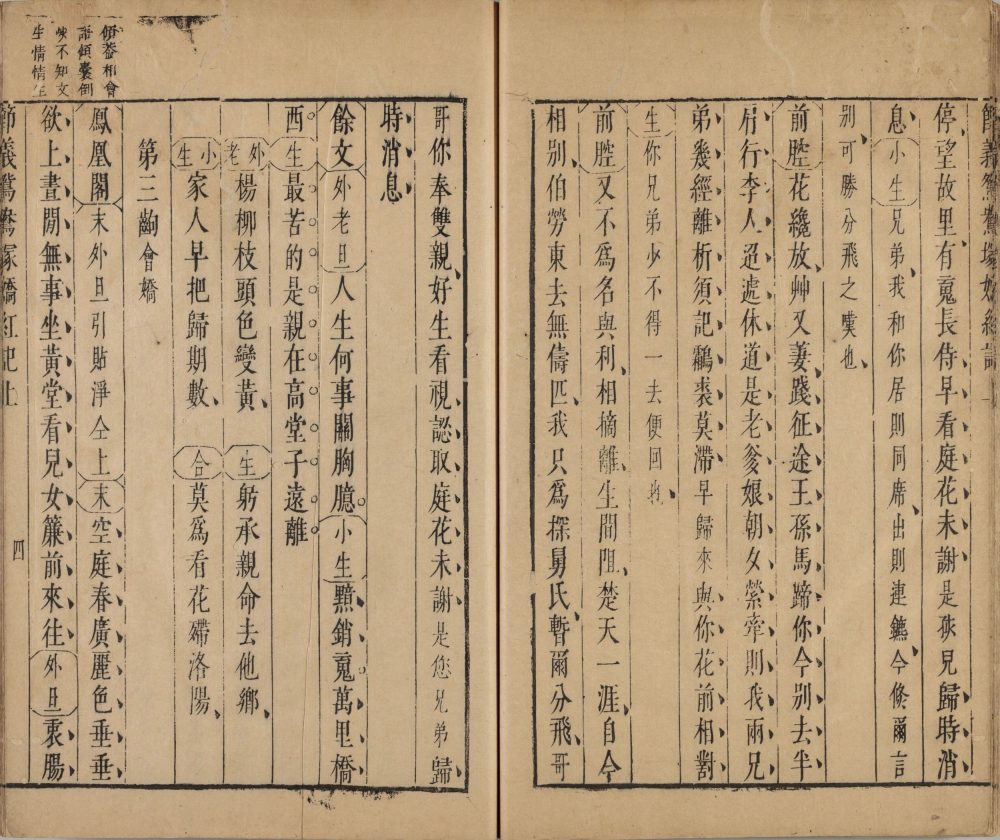 停望故里有䰟長侍早看庭花未謝是孩兒歸時消
息小生兄弟我和你居則同席出則連鑣今倐爾言
別可勝分飛之嘆也
前腔花纔放艸又萋踐征途王孫馬蹄你今別去半
肩行李人迢遞休道是老爹娘朝夕縈牽則我兩兄
弟幾經離析須記鷫裘莫滯早歸來與你花前相對
生你兄弟少不得一去便回的
前腔又不爲名與利相摘離生間阻楚天一涯自今
相別伯勞東去無儔匹我只爲探舅氏暫爾分飛哥
哥你奉雙親好生看視認取庭花未謝是您兄弟歸
時消息
餘文外老旦人生何事關胸臆小生黯銷䰟萬里橋
西生最苦的是親在高堂子遠離
外老楊柳枝頭色變黃生躬承親命去他鄉
小生家人早把歸期數合莫爲看花殢洛陽
第三齣會嬌
傾蓋相會
語傾囊倒
峽不知文
生情情生
鳳凰閣末外旦引貼淨仝上末空庭春廣麗色垂垂
欲上晝閒無事坐黃堂看兒女簾前來往外旦衷腸
節義鴛鴦塚嬌紅記上
四